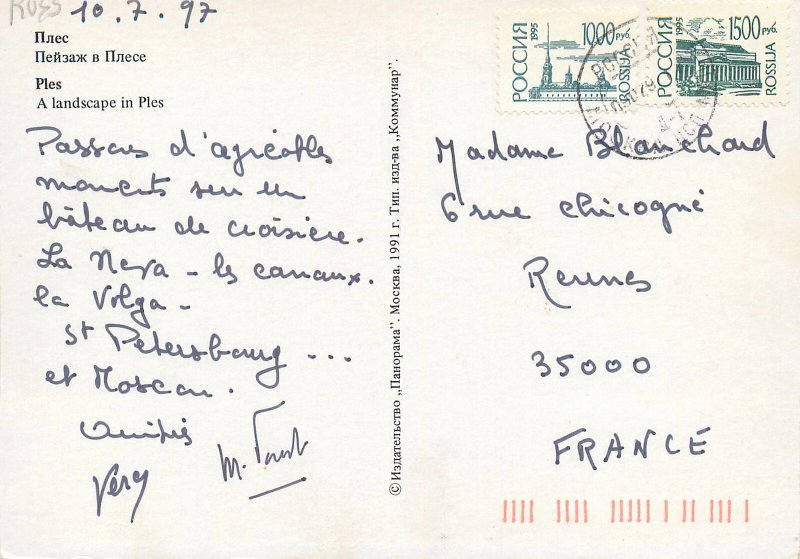 10.7.97
Плес
Пейзаж в Плесе
Ples
A landscape in Ples
Passons d'agréables
moments sur un
bâteau de croisière.
La Neva - les canaux.
La Volga -
St Petersbourg ...
et Moscou.
Amitiés
© Издательство „Панорама". Москва, 1991 г. Тип. изд-ва „Коммунар".
РОССИЯ 1995 1000 РУБ. ROSSIJA
РОССИЯ 1995 1500 РУБ. ROSSIJA
Madame Blanchard
6 rue Chicogné
Rennes
35000
FRANCE